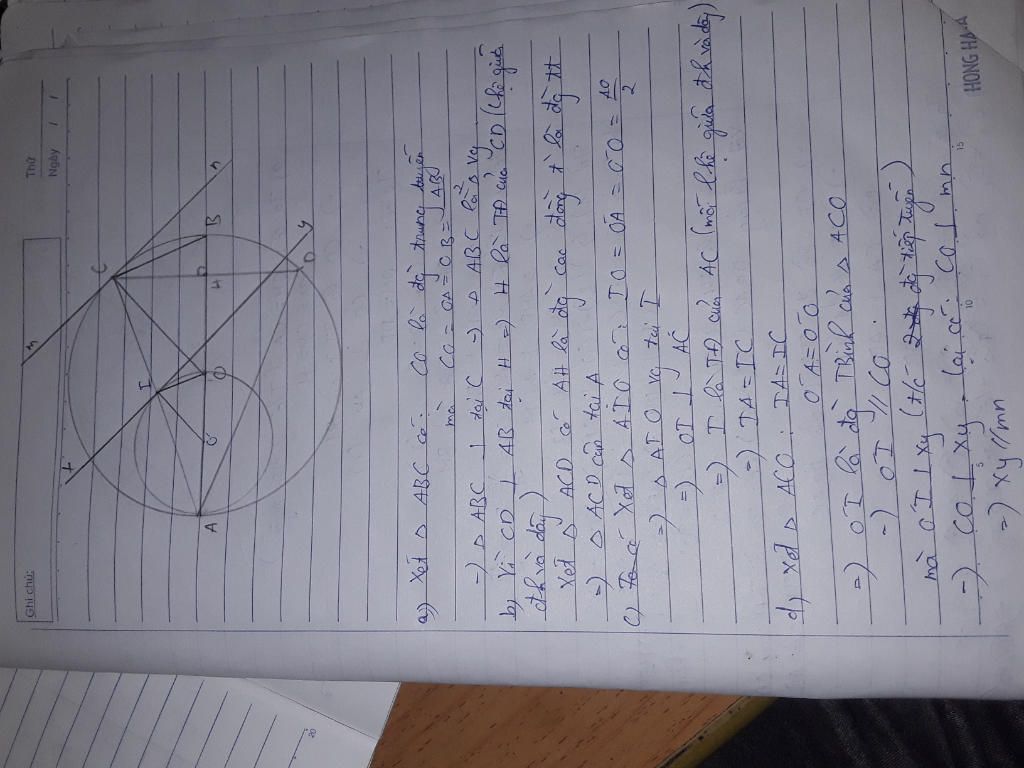 Ghi chú:
Thứ
Ngày / /
m
C
n
x
I
A
O'
O
H
B
D
y
a) Xét △ ABC có: CO là đg trung tuyến
mà CO = OA = OB = AB/2
=) △ ABC ⊥ tại C =) △ ABC là △ vg
b) Vì CD ⊥ AB tại H =) H là TĐ của CD (l.hệ giữa
đk và dây)
Xét △ ACD có AH là đg cao đồng t' là đg tt
=) △ ACD cân tại A
c) Ta có Xét △ AIO có: IO' = O'A = O'O = AO/2
=) △ AIO vg tại I
=) OI ⊥ AC
=) I là TĐ của AC (mối l.hệ giữa đk và dây)
=) IA = IC
d) Xét △ ACO: IA = IC
O'A = O'O
=) O'I là đg TBình của △ ACO
=) O'I // CO.
mà O'I ⊥ xy (t/c đg tiếp tuyến)
=) CO ⊥ xy. lại có: CO ⊥ mn
=) xy // mn
5
10
15
HONG HA
20